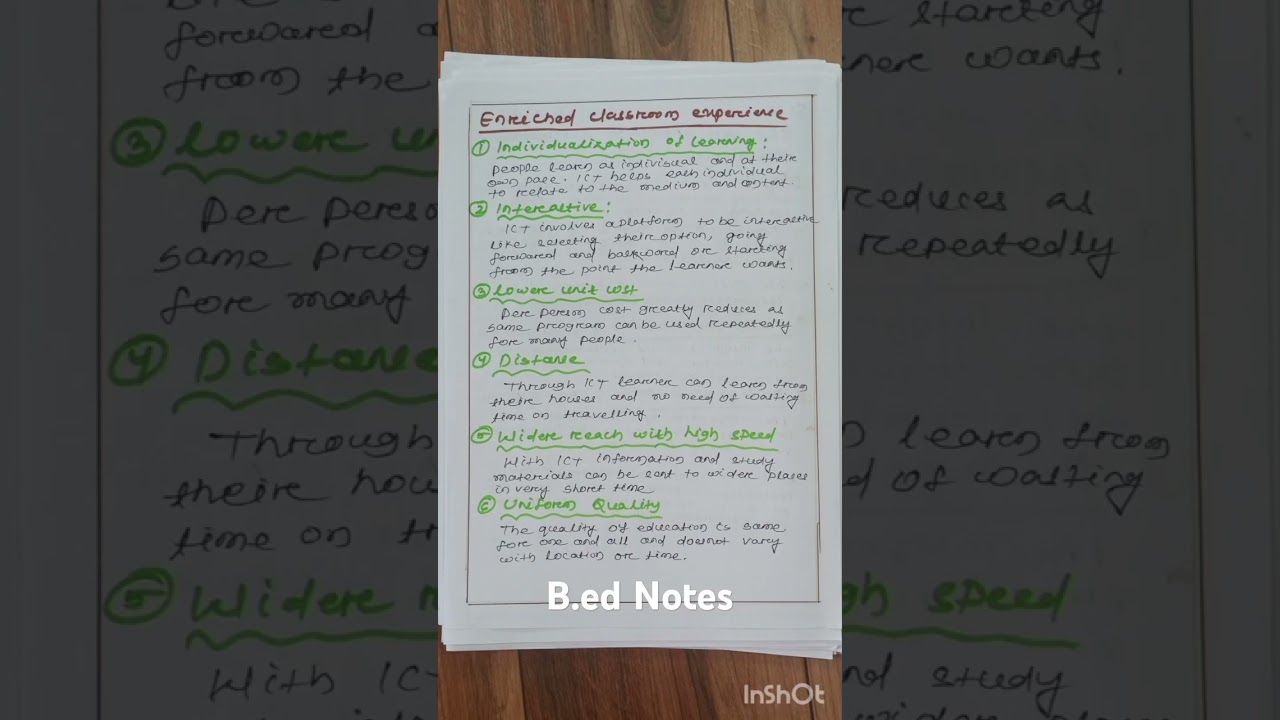 Enriched classroom experience
① Individualization of Learning:
people learn as indivisual and at their
own pace. ICT helps each individual
to reelate to the medium and content.
② Interactive:
ICT involves a platform to be interactive
like selecting their option, going
forward and backward or starting
from the point the learner wants.
③ Lower unit cost
Per person cost greatly reduces as
same program can be used repeatedly
for many people.
④ Distance
Through ICT learner can learn from
their houses and no need of wasting
time on travelling.
⑤ Wider reach with high speed
With ICT information and study
materials can be sent to wider places
in very short time
⑥ Uniform Quality
The quality of education is same
for one and all and doesnot vary
with location or time.
B.ed Notes
InShOt